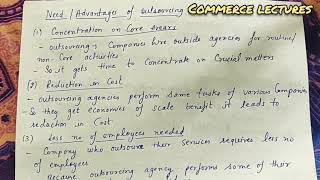 Need / Advantages of outsourcing
COMMERCE LECTURES
(1) Concentration on Core areas
- outsourcing → Companies hire outside agencies for routine/
non-core activities
- So it gets time to concentrate on Crucial matters
(2) Reduction in Cost
- outsourcing agencies perform some tasks of various companies
- So they get economies of scale benefit it leads to
reduction in Cost
(3) Less no of employees needed
Company who outsource their services requires less no
of employees
Because outsourcing agency performs some of their